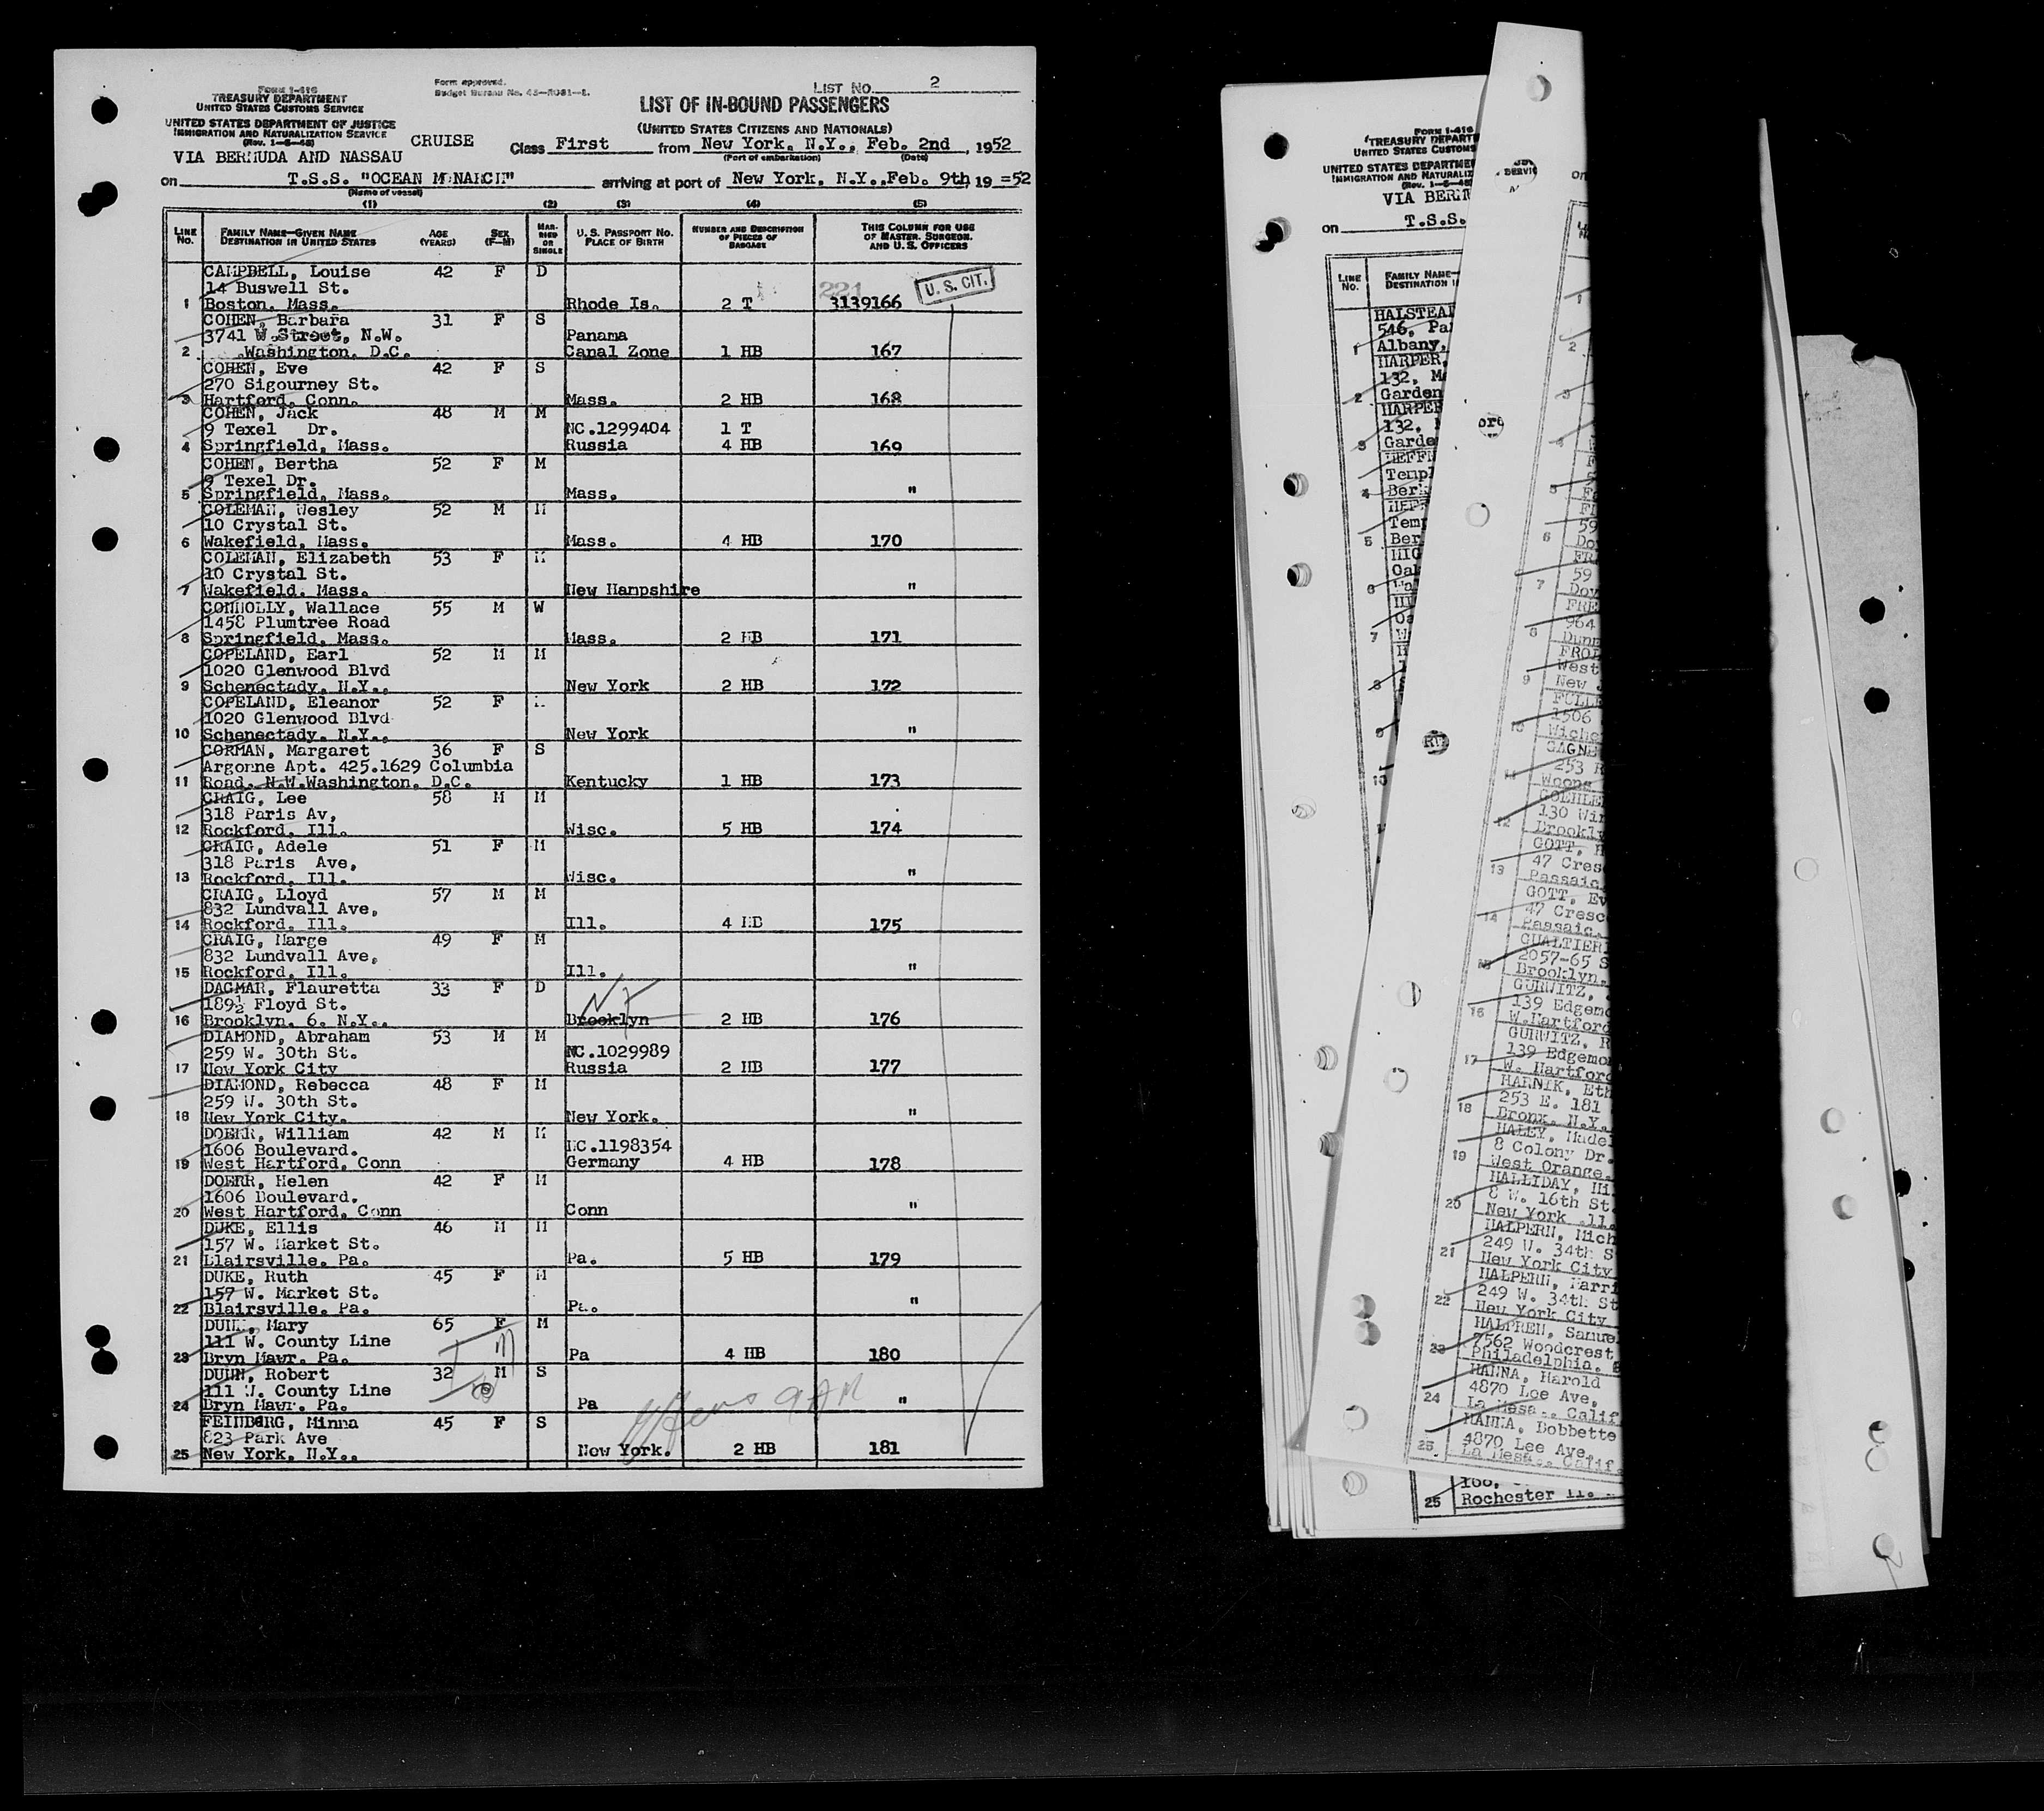 Form approved.
Budget Bureau No. 43-R081-1.
LIST No. 2
Form I-416
TREASURY DEPARTMENT
UNITED STATES CUSTOMS SERVICE
LIST OF IN-BOUND PASSENGERS
UNITED STATES DEPARTMENT OF JUSTICE
IMMIGRATION AND NATURALIZATION SERVICE
(UNITED STATES CITIZENS AND NATIONALS)
CRUISE
Class First from New York, N.Y., Feb. 2nd, 1952
(Port of embarkation) (Date)
VIA BERMUDA AND NASSAU
on T.S.S. "OCEAN MONARCH" arriving at port of New York, N.Y., Feb. 9th 19=52
(Name of vessel)
(1) (2) (3) (4) (5)
LINE No. FAMILY NAME—GIVEN NAME DESTINATION IN UNITED STATES AGE (YEARS) SEX (F—M) MARRIED OR SINGLE U. S. PASSPORT No. PLACE OF BIRTH NUMBER AND DESCRIPTION OF PIECES OF BAGGAGE THIS COLUMN FOR USE OF MASTER, SURGEON, AND U. S. OFFICERS
CAMPBELL, Louise 42 F D
14 Buswell St. 221 U. S. CIT.
1 Boston, Mass. Rhode Is. 2 T 3139166
COHEN, Barbara 31 F S
3741 W.Street, N.W. Panama
2 Washington, D.C. Canal Zone 1 HB 167
COHEN, Eve 42 F S
270 Sigourney St.
3 Hartford, Conn. Mass. 2 HB 168
COHEN, Jack 48 M M
9 Texel Dr. NC.1299404 1 T
4 Springfield, Mass. Russia 4 HB 169
COHEN, Bertha 52 F M
9 Texel Dr.
5 Springfield, Mass. Mass. "
COLEMAN, Wesley 52 M M
10 Crystal St.
6 Wakefield, Mass. Mass. 4 HB 170
COLEMAN, Elizabeth 53 F M
10 Crystal St.
7 Wakefield, Mass. New Hampshire "
CONNOLLY, Wallace 55 M W
1458 Plumtree Road
8 Springfield, Mass. Mass. 2 HB 171
COPELAND, Earl 52 M M
1020 Glenwood Blvd
9 Schenectady, N.Y., New York 2 HB 172
COPELAND, Eleanor 52 F
1020 Glenwood Blvd
10 Schenectady, N.Y., New York "
CORMAN, Margaret 36 F S
Argonne Apt. 425.1629 Columbia
11 Road, N.W.Washington, D.C. Kentucky 1 HB 173
CRAIG, Lee 58 M M
318 Paris Av,
12 Rockford, Ill. Wisc. 5 HB 174
CRAIG, Adele 51 F M
318 Paris Ave,
13 Rockford, Ill. Wisc. "
CRAIG, Lloyd 57 M M
832 Lundvall Ave,
14 Rockford, Ill. Ill. 4 HB 175
CRAIG, Marge 49 F M
832 Lundvall Ave,
15 Rockford, Ill. Ill. "
DAGMAR, Flauretta 33 F D
189½ Floyd St. NY
16 Brooklyn, 6, N.Y., Brooklyn 2 HB 176
DIAMOND, Abraham 53 M M
259 W. 30th St. NC.1029989
17 New York City Russia 2 HB 177
DIAMOND, Rebecca 48 F M
259 W. 30th St.
18 New York City. New York. "
DOERR, William 42 M M
1606 Boulevard. NC.1198354
19 West Hartford, Conn Germany 4 HB 178
DOERR, Helen 42 F M
1606 Boulevard.
20 West Hartford, Conn Conn "
DUKE, Ellis 46 M M
157 W. Market St.
21 Blairsville, Pa. Pa. 5 HB 179
DUKE, Ruth 45 F M
157 W. Market St.
22 Blairsville, Pa. Pa. "
DUNN, Mary 65 F M
111 W. County Line
23 Bryn Mawr, Pa. Pa 4 HB 180
DUNN, Robert 32 M S
111 W. County Line
24 Bryn Mawr, Pa. Pa "
FEINBERG, Minna 45 F S
823 Park Ave
25 New York, N.Y., New York. 2 HB 181
FORM I-416
UNITED STATES CUSTOMS
UNITED STATES
T.S.S.
on
LINE No. FAMILY NAME—
546, Pa
1 Albany,
HARPER,
132,
2 Garden
132,
3
4
5
6
7
8
10
964
West
9 New
1506
253
130
12
GOTT,
47 Cres
13 Passaic
GOTT, Ev
47 Cresc
14 Passaic,
GUALTIER
2057-65 S
Brooklyn,
GURWITZ,
139 Edgem
16 W.Hartford
GURWITZ, R
139 Edgemo
17 W. Hartford
HARNIK, Eth
253 E. 181
18 Bronx, N.Y.
HALEY, Made
8 Colony Dr.
19 West Orange,
HALLIDAY,
8 W. 16th St.
20 New York 11,
HALPERN, Mich
249 W. 34th S
21 New York City
HALPERN, Harri
249 W. 34th St
22 New York City
HALPREN, Samue
7562 Woodcrest
23 Philadelphia,
HANNA, Harold
4870 Lee Ave,
24 La Mesa., Calif
HANNA, Bobbette
4870 Lee Ave,
25 La Mesa., Calif.
25 Rochester 11.